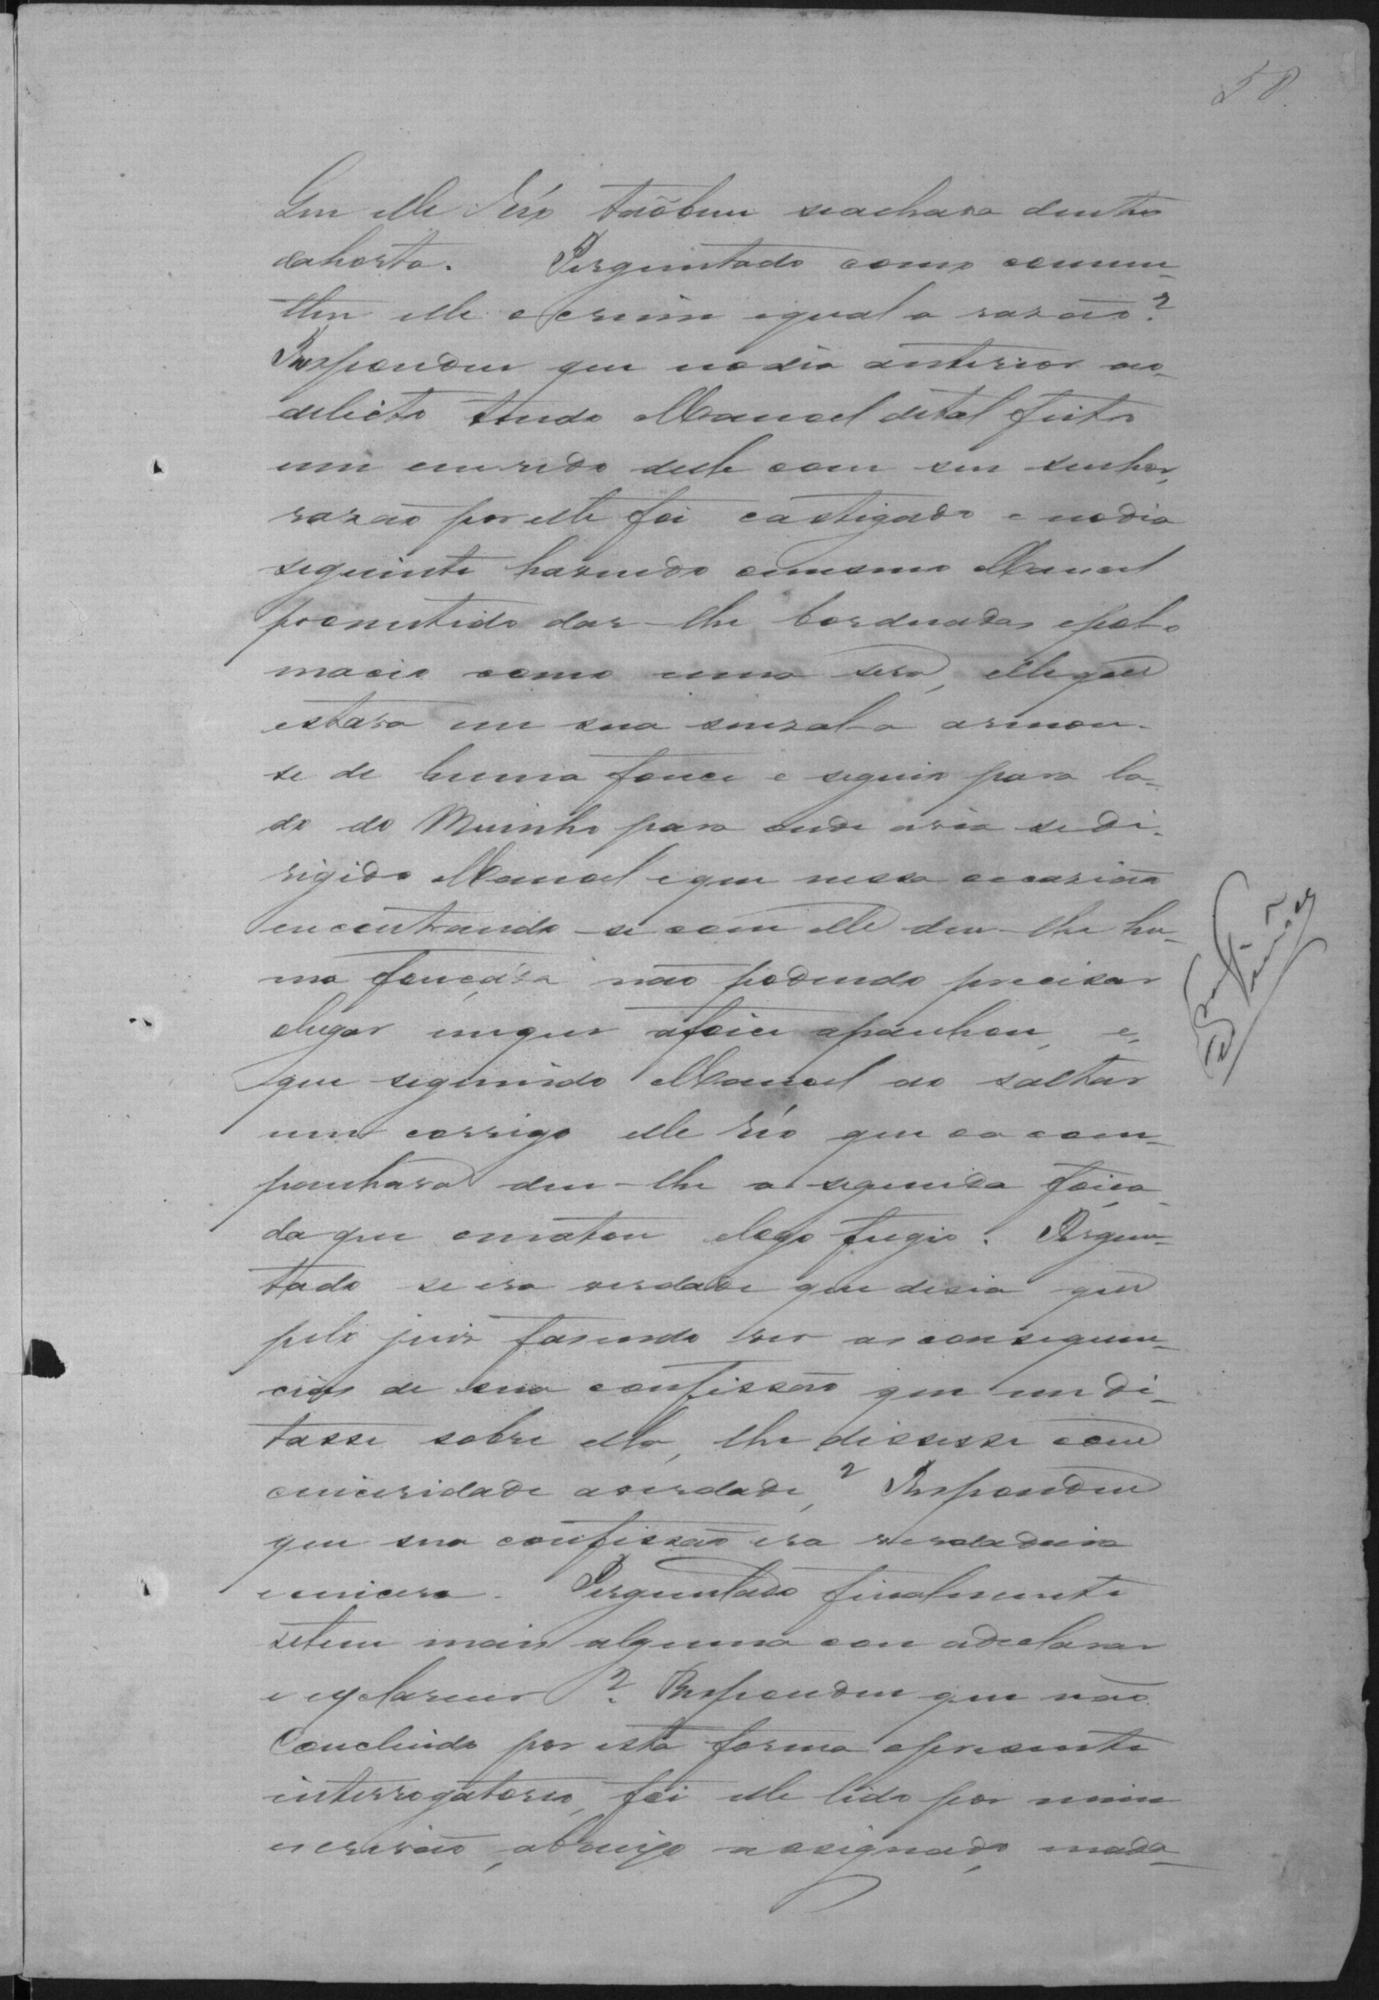 58
que elle Réo tãobem seachava dentro
dahorta. Perguntado como comme-
tteu elle o crime equal a razão?
Respondeu que nodia anterior ao
delicto tendo Manoel detal feito
um enredo delle com seu senhor,
razão por elle foi castigado e nodia
seguinte havendo omesmo Manoel
promettido dar-lhe borduadas epol-o
macio como uma sera, elle que
estava em sua senzala armou-
se de huma fouce e seguio para la-
do do Muinho para onde avia sedi-
rigido Manoel eque nessa occazião
encontrando-se com elle deu-lhe hu-
ma fouçada não podendo precizar
olugar emque afoice apanhou, e,
que seguindo Manoel ao saltar
um corrigo elle réo que oacom-
panhava deu-lhe a segunda foiça-
da que omatou elogo fugio. Pergun-
tado se era verdade que desia que
pelo juiz fasendo ver as consequen-
cias de sua confissão que me di-
tasse sobre ella, lhe dissesse com
cinceridade averdade? Respondeu
que sua confissão era verdadeira
e cincera. Perguntado finalmente
setem mais alguma cou adeclarar
e esclarecer? Respondeu que não.
Concluido por esta forma opresente
interrogatorio, foi elle lido por mim
escrivão, abaixo assignado, mada-